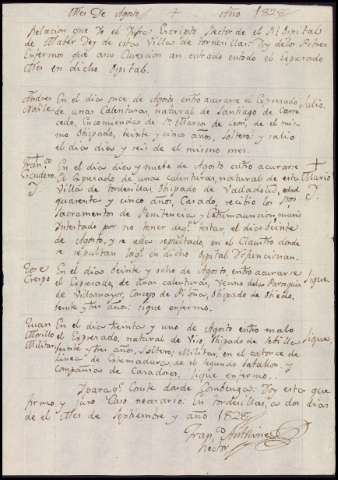 Mes De Agosto + Año 1828
Relacion que Yo el Infro Escripto Rector de el Rl Ospital
de Mater Dey de esta Villa de tordesillas Doy de los Pobres
Enfermos que an entrado en todo el espresado
Mes en dicho Ospital.
Andres En el dia once de Agosto entro a curarse el Espresado Salio
de unas Calenturas, natural de Santiago de
de Sn Marcos de Leon, de el mismo
Obispado, veinte y cinco años, Soltero y salio
el dia diez y seis de el mismo mes.
Franco En el dia diez y nueve de Agosto entro a curarse +
Escudero el Espresado de unas calenturas natural de esta
Villa de tordesillas Obispado de Valladolid, edad
quarenta y cinco años, Casado, recibio los Stos
Sacramentos de Penitencia y Extremauncion, murio
Intestado por no tener de que testar el dia veinte
de Agosto, y se a sepultado, en el Claustro donde
se sepultan en dicho Ospital
Jose En el dia veinte y ocho de Agosto, entro a curarse Sigue
Crespo el Espresado, de unas calenturas, Vecino de la Parroquia
de Villamayor, Concejo de Obispado de Oviedo,
veinte y tres años, sigue enfermo.
Juan En el dia treinta y uno de Agosto entro malo Sigue
Morillo el Espresado, natural de Viso, Obispado de Sevilla
Militar veinte y tres años, Soltero, Militar, en el catorce de
Linea de Estremadura de el segundo batallon y
Compañia de Cazadores, sigue enfermo.
Y para que Conste donde Conbenga, Doy esta que
firmo y Juro Caso necesario. En tordesillas, a dos dias
de el Mes de Septiembre y año 1828
Franco Antunez
Rector